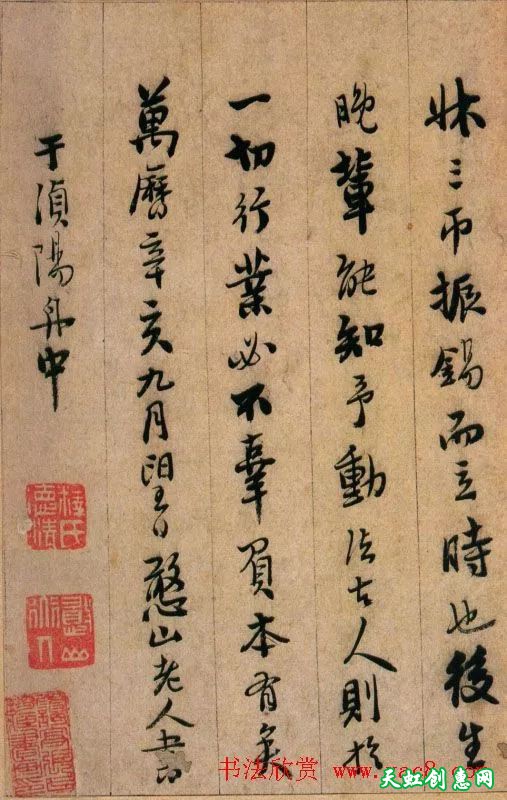 牀三帀振錫而立時也後生
晚輩能知予動法古人則於
一切行業必不辜負本有矣
萬曆辛亥九月朢日憨山老人書
于湞陽舟中
釋氏德清
书法欣赏 www.yac8.com
天虹创惠网